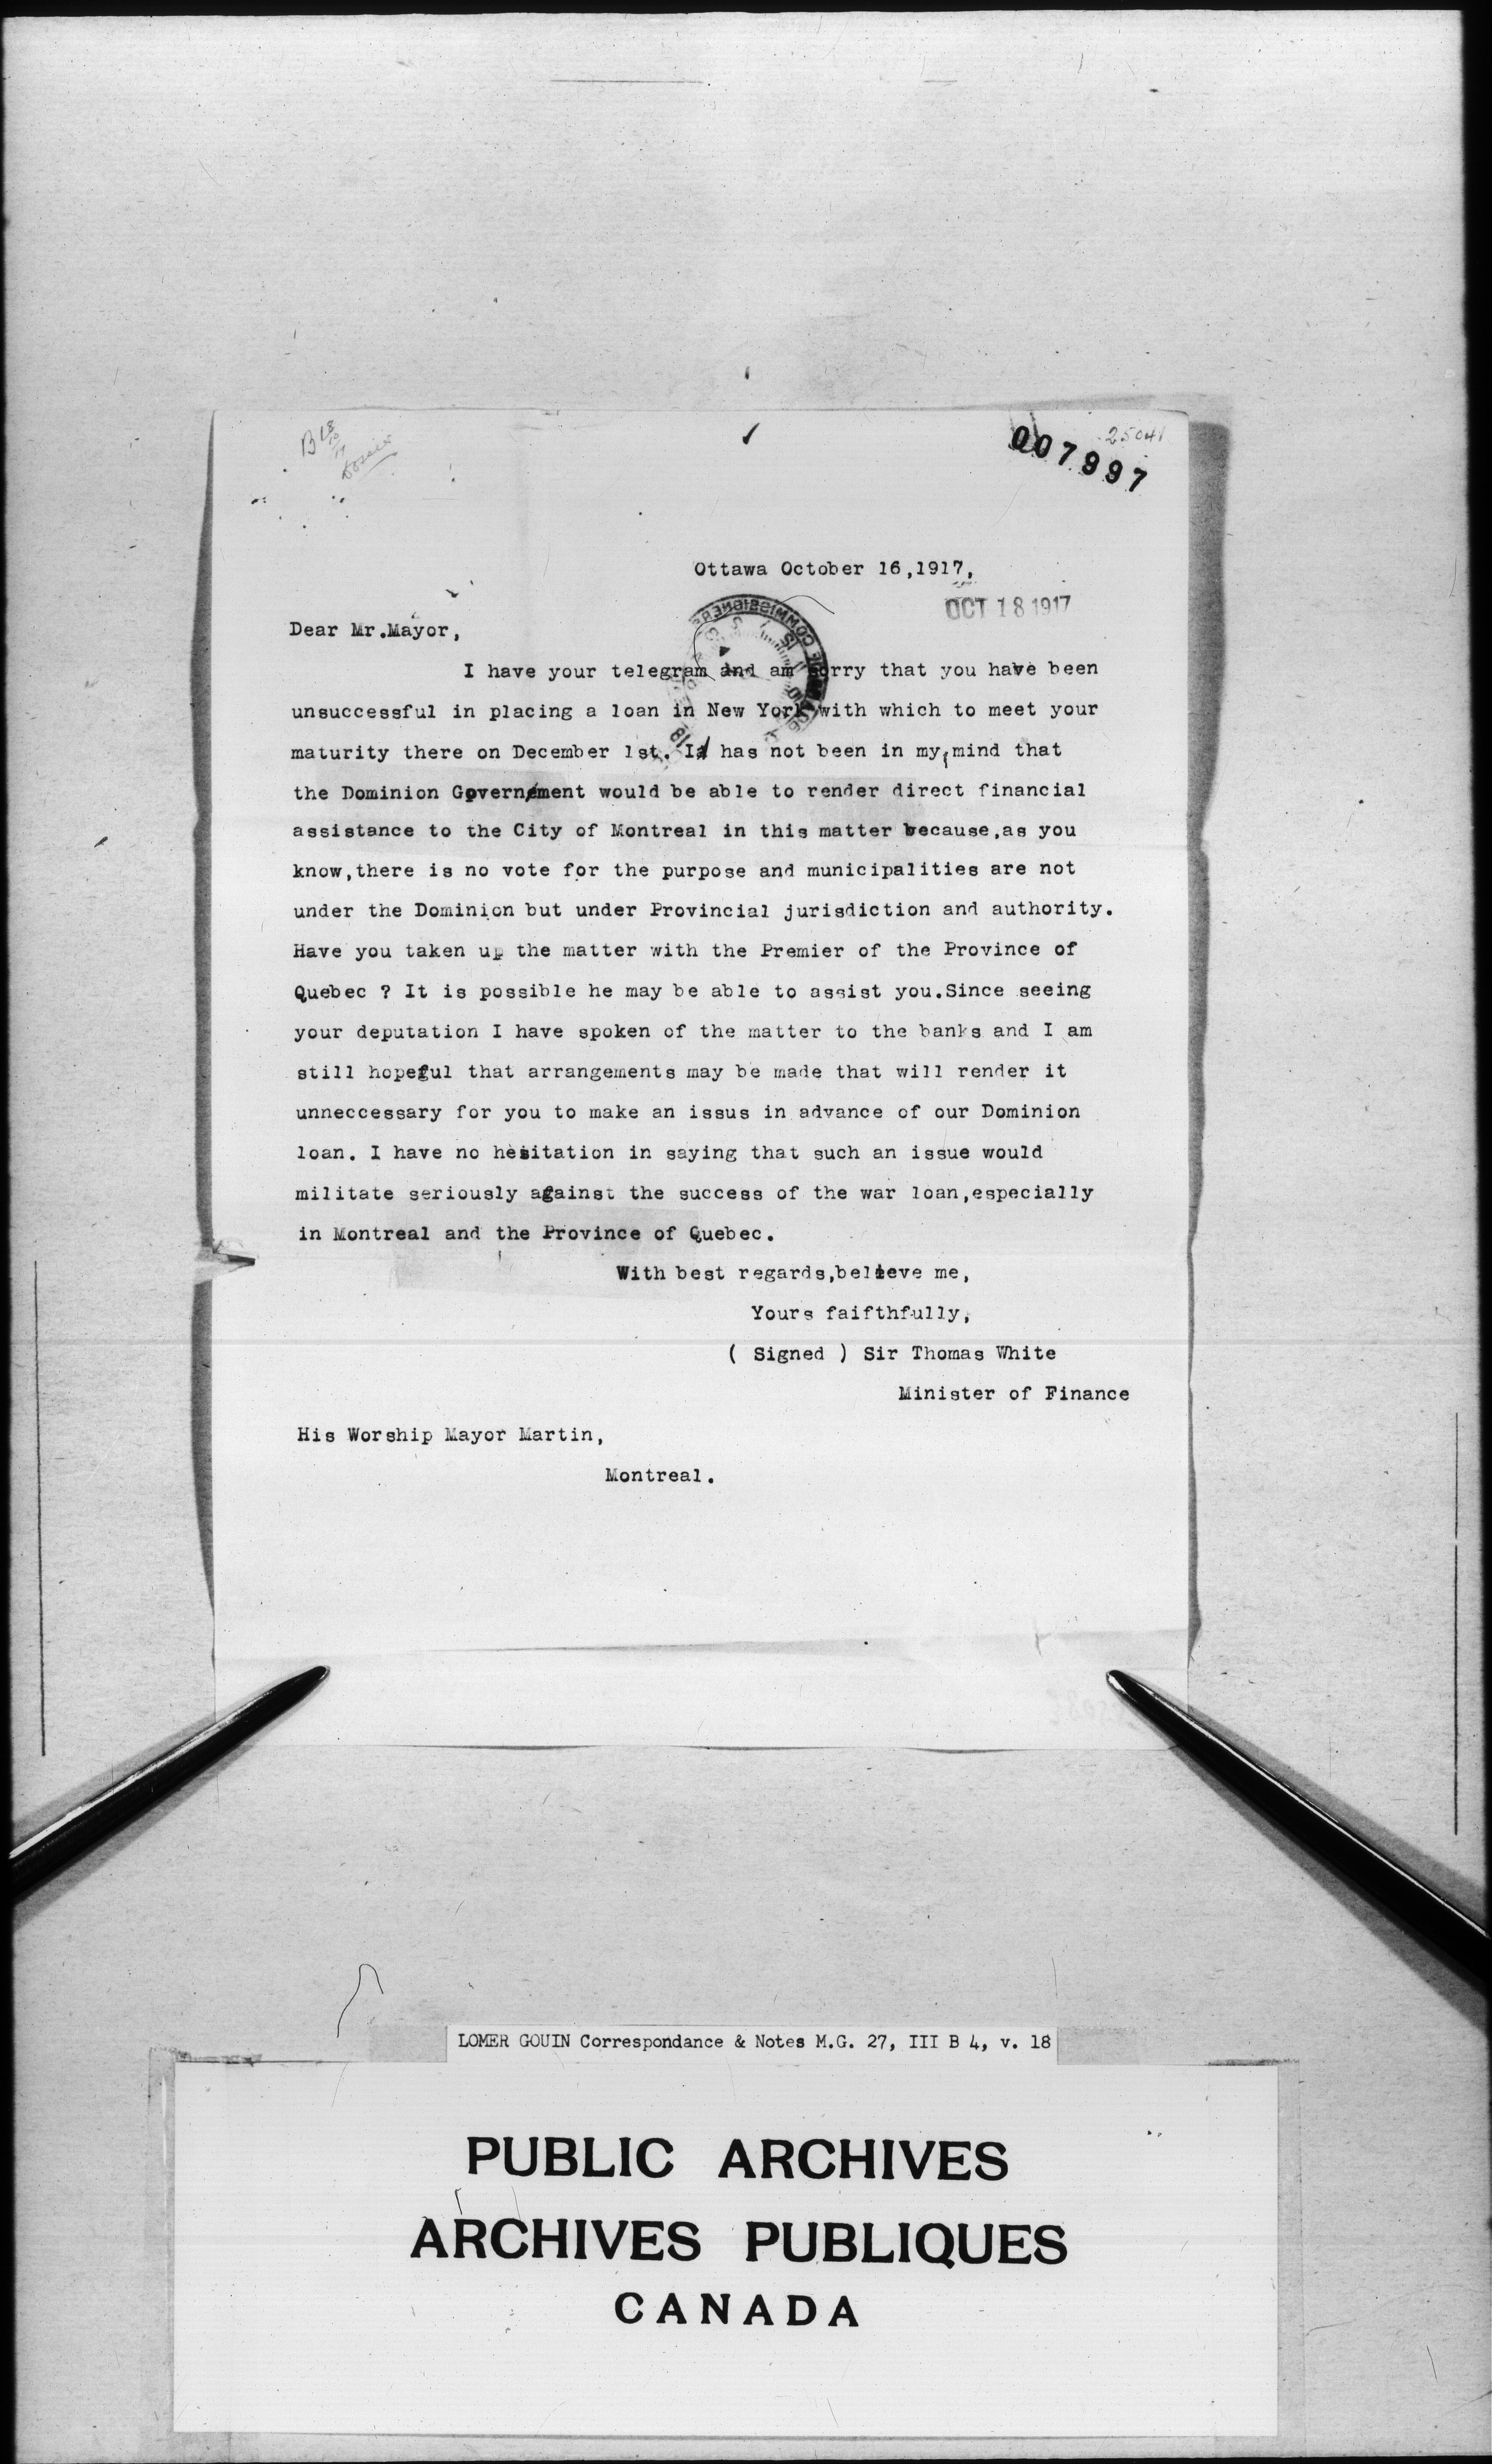 B 18
10
17
Dossier
25041
007997
Ottawa October 16,1917,
OCT 18 1917
Dear Mr.Mayor,
I have your telegram and am sorry that you have been
unsuccessful in placing a loan in New York with which to meet your
maturity there on December 1st. It has not been in my mind that
the Dominion Government would be able to render direct financial
assistance to the City of Montreal in this matter because,as you
know,there is no vote for the purpose and municipalities are not
under the Dominion but under Provincial jurisdiction and authority.
Have you taken up the matter with the Premier of the Province of
Quebec ? It is possible he may be able to assist you.Since seeing
your deputation I have spoken of the matter to the banks and I am
still hopeful that arrangements may be made that will render it
unneccessary for you to make an issus in advance of our Dominion
loan. I have no hesitation in saying that such an issue would
militate seriously against the success of the war loan,especially
in Montreal and the Province of Quebec.
With best regards,believe me,
Yours faifthfully,
( Signed ) Sir Thomas White
Minister of Finance
His Worship Mayor Martin,
Montreal.
LOMER GOUIN Correspondance & Notes M.G. 27, III B 4, v. 18
PUBLIC ARCHIVES
ARCHIVES PUBLIQUES
CANADA